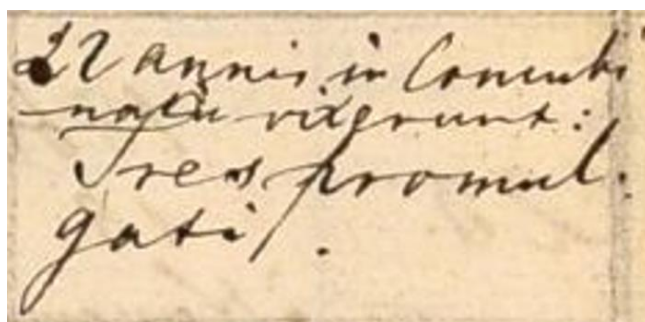 22 annis in Concubi
natu vixerunt:
Tres promul.
gati.